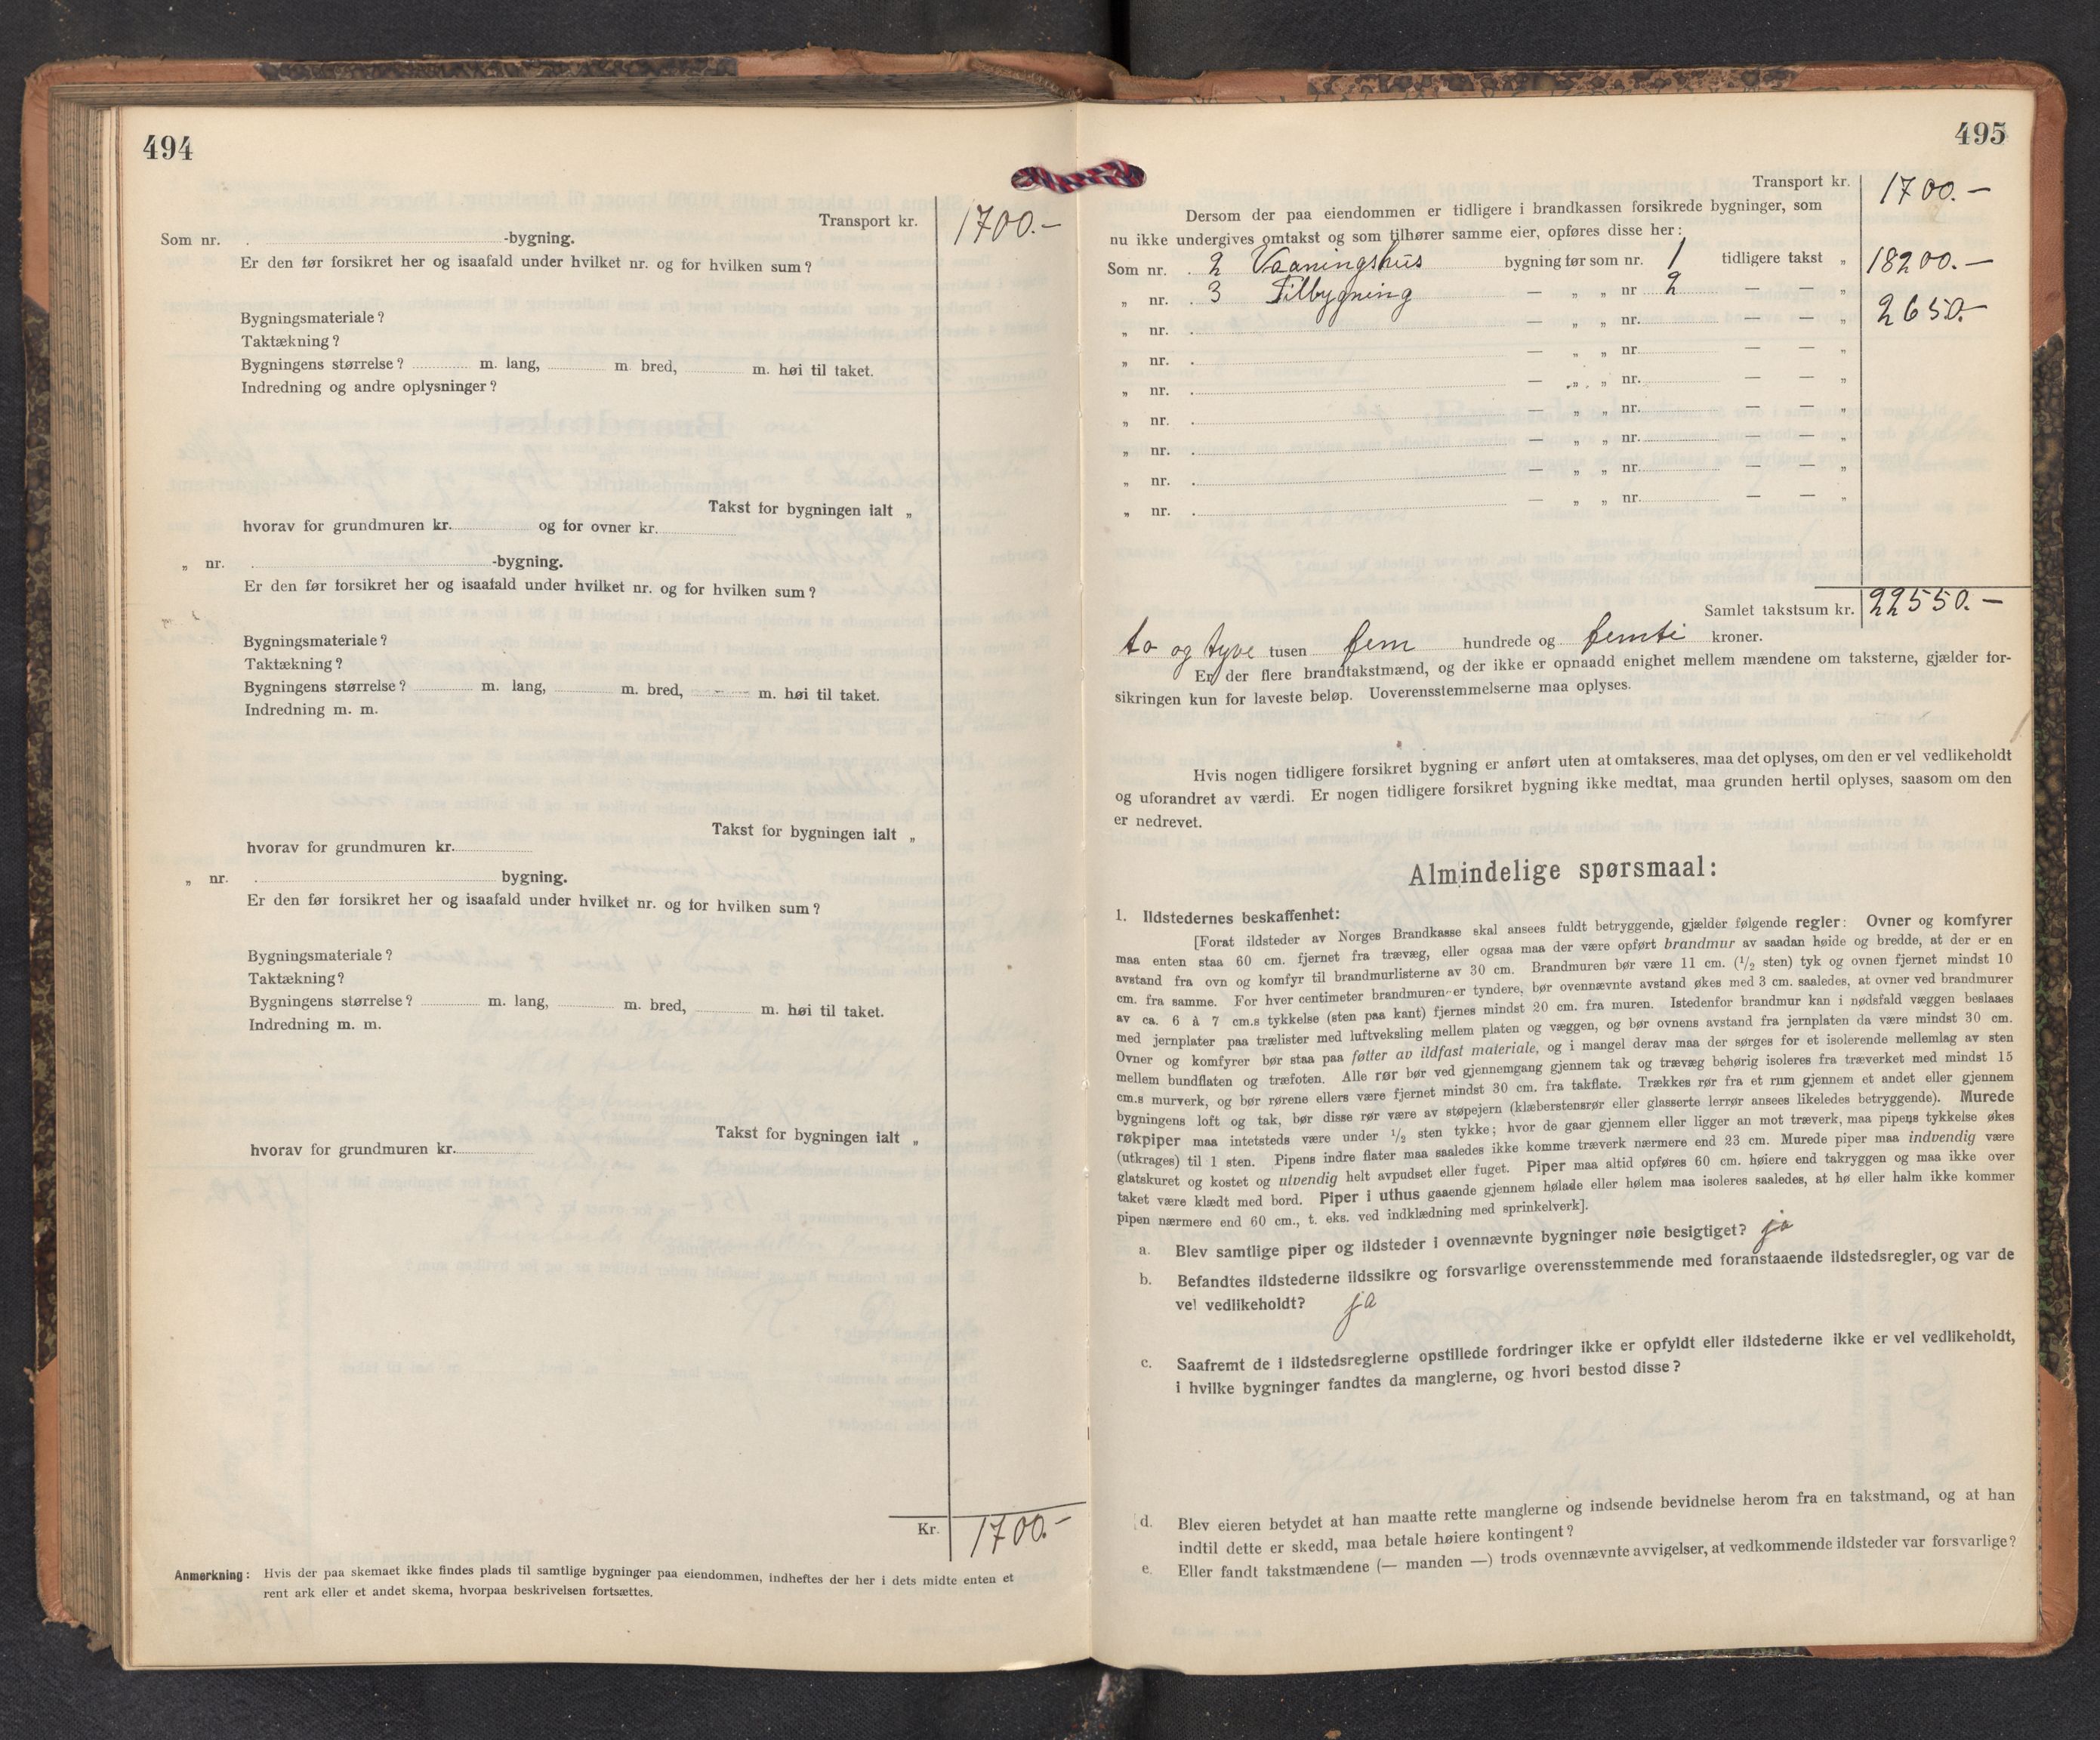 494
Transport kr. 1700.-
Som nr. . -bygning.
Er den før forsikret her og isaafald under hvilket nr. og for hvilken sum?
Bygningsmateriale?
Taktækning?
Bygningens størrelse? m. lang, m bred, m. høi til taket.
Indredning og andre oplysninger?
Takst for bygningen ialt „
hvorav for grundmuren kr. og for ovner kr.
„ nr. -bygning.
Er den før forsikret her og isaafald under hvilket nr. og for hvilken sum?
Bygningsmateriale?
Taktækning?
Bygningens størrelse? m. lang, m. bred, m. høi til taket.
Indredning m. m.
Takst for bygningen ialt „
hvorav for grundmuren kr.
„ nr. . bygning.
Er den før forsikret her og isaafald under hvilket nr. og for hvilken sum?
Bygningsmateriale?
Taktækning?
Bygningens størrelse? m. lang, m. bred, m. høi til taket.
Indredning m. m.
Takst for bygningen ialt „
hvorav for grundmuren kr.
Kr. 1700.-
Anmerkning: Hvis der paa skemaet ikke findes plads til samtlige bygninger paa eiendommen, indheftes der her i dets midte enten et
rent ark eller et andet skema, hvorpaa beskrivelsen fortsættes.
495
Transport kr. 1700.-
Dersom der paa eiendommen er tidligere i brandkassen forsikrede bygninger, som
nu ikke undergives omtakst og som tilhører samme eier, opføres disse her:
Som nr. . 2 Vaaningshus bygning før som nr. 1 tidligere takst „ 18200.-
„ nr. . 3 Tilbygning — „ „ nr 2 — — „ 2650.-
„ nr. . — „ „ nr. — — „
„ nr. . — „ „ nr. — — „
„ nr. . — „ „ nr. — — „
„ nr. . — „ „ nr. — — „
„ nr. . — „ „ nr. — — „
„ nr. . — „ „ nr. — — „
„ nr. . — „ „ nr. — — „
Samlet takstsum kr. 22550.-
to og tyve tusen fem hundrede og femti kroner.
Er der flere brandtakstmænd, og der ikke er opnaadd enighet mellem mændene om taksterne, gjælder for-
sikringen kun for laveste beløp. Uoverensstemmelserne maa oplyses.
Hvis nogen tidligere forsikret bygning er anført uten at omtakseres, maa det oplyses, om den er vel vedlikeholdt
og uforandret av værdi. Er nogen tidligere forsikret bygning ikke medtat, maa grunden hertil oplyses, saasom om den
er nedrevet.
Almindelige spørsmaal:
1. Ildstedernes beskaffenhet:
[Forat ildsteder av Norges Brandkasse skal ansees fuldt betryggende, gjælder følgende regler: Ovner og komfyrer
maa enten staa 60 cm. fjernet fra trævæg, eller ogsaa maa der være opført brandmur av saadan høide og bredde, at der er en
avstand fra ovn og komfyr til brandmurlisterne av 30 cm. Brandmuren bør være 11 cm. (1/2 sten) tyk og ovnen fjernet mindst 10
cm. fra samme. For hver centimeter brandmuren er tyndere, bør ovennævnte avstand økes med 3 cm. saaledes, at ovner ved brandmurer
av ca. 6 à 7 cm.s tykkelse (sten paa kant) fjernes mindst 20 cm. fra muren. Istedenfor brandmur kan i nødsfald væggen beslaaes
med jernplater paa trælister med luftveksling mellem platen og væggen, og bør ovnens avstand fra jernplaten da være mindst 30 cm.
Ovner og komfyrer bør staa paa føtter av ildfast materiale, og i mangel derav maa der sørges for et isolerende mellemlag av sten
mellem bundflaten og træfoten. Alle rør bør ved gjennemgang gjennem tak og trævæg behørig isoleres fra træverket med mindst 15
cm.s murverk, og bør rørene ellers være fjernet mindst 30 cm. fra takflate. Trækkes rør fra et rum gjennem et andet eller gjennem
bygningens loft og tak, bør disse rør være av støpejern (klæberstensrør eller glasserte lerrør ansees likeledes betryggende). Murede
røkpiper maa intetsteds være under 1/2 sten tykke; hvor de gaar gjennem eller ligger an mot træverk, maa pipens tykkelse økes
(utkrages) til 1 sten. Pipens indre flater maa saaledes ikke komme træverk nærmere end 23 cm. Murede piper maa indvendig være
glatskuret og kostet og utvendig helt avpudset eller fuget. Piper maa altid opføres 60 cm. høiere end takryggen og maa ikke over
taket være klædt med bord. Piper i uthus gaaende gjennem hølade eller hølem maa isoleres saaledes, at hø eller halm ikke kommer
pipen nærmere end 60 cm., t. eks. ved indklædning med sprinkelverk].
a. Blev samtlige piper og ildsteder i ovennævnte bygninger nøie besigtiget? ja
b. Befandtes ildstederne ildssikre og forsvarlige overensstemmende med foranstaaende ildstedsregler, og var de
vel vedlikeholdt? ja
c. Saafremt de i ildstedsreglerne opstillede fordringer ikke er opfyldt eller ildstederne ikke er vel vedlikeholdt,
i hvilke bygninger fandtes da manglerne, og hvori bestod disse?
d. Blev eieren betydet at han maatte rette manglerne og indsende bevidnelse herom fra en takstmand, og at han
indtil dette er skedd, maa betale høiere kontingent?
e. Eller fandt takstmændene (— manden —) trods ovennævnte avvigelser, at vedkommende ildsteder var forsvarlige?